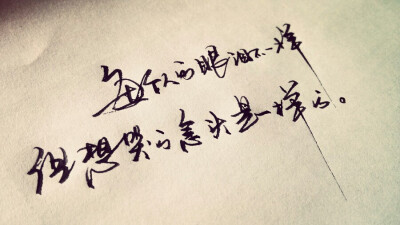 每个人的眼泪不一样
但想哭的念头是一样的。